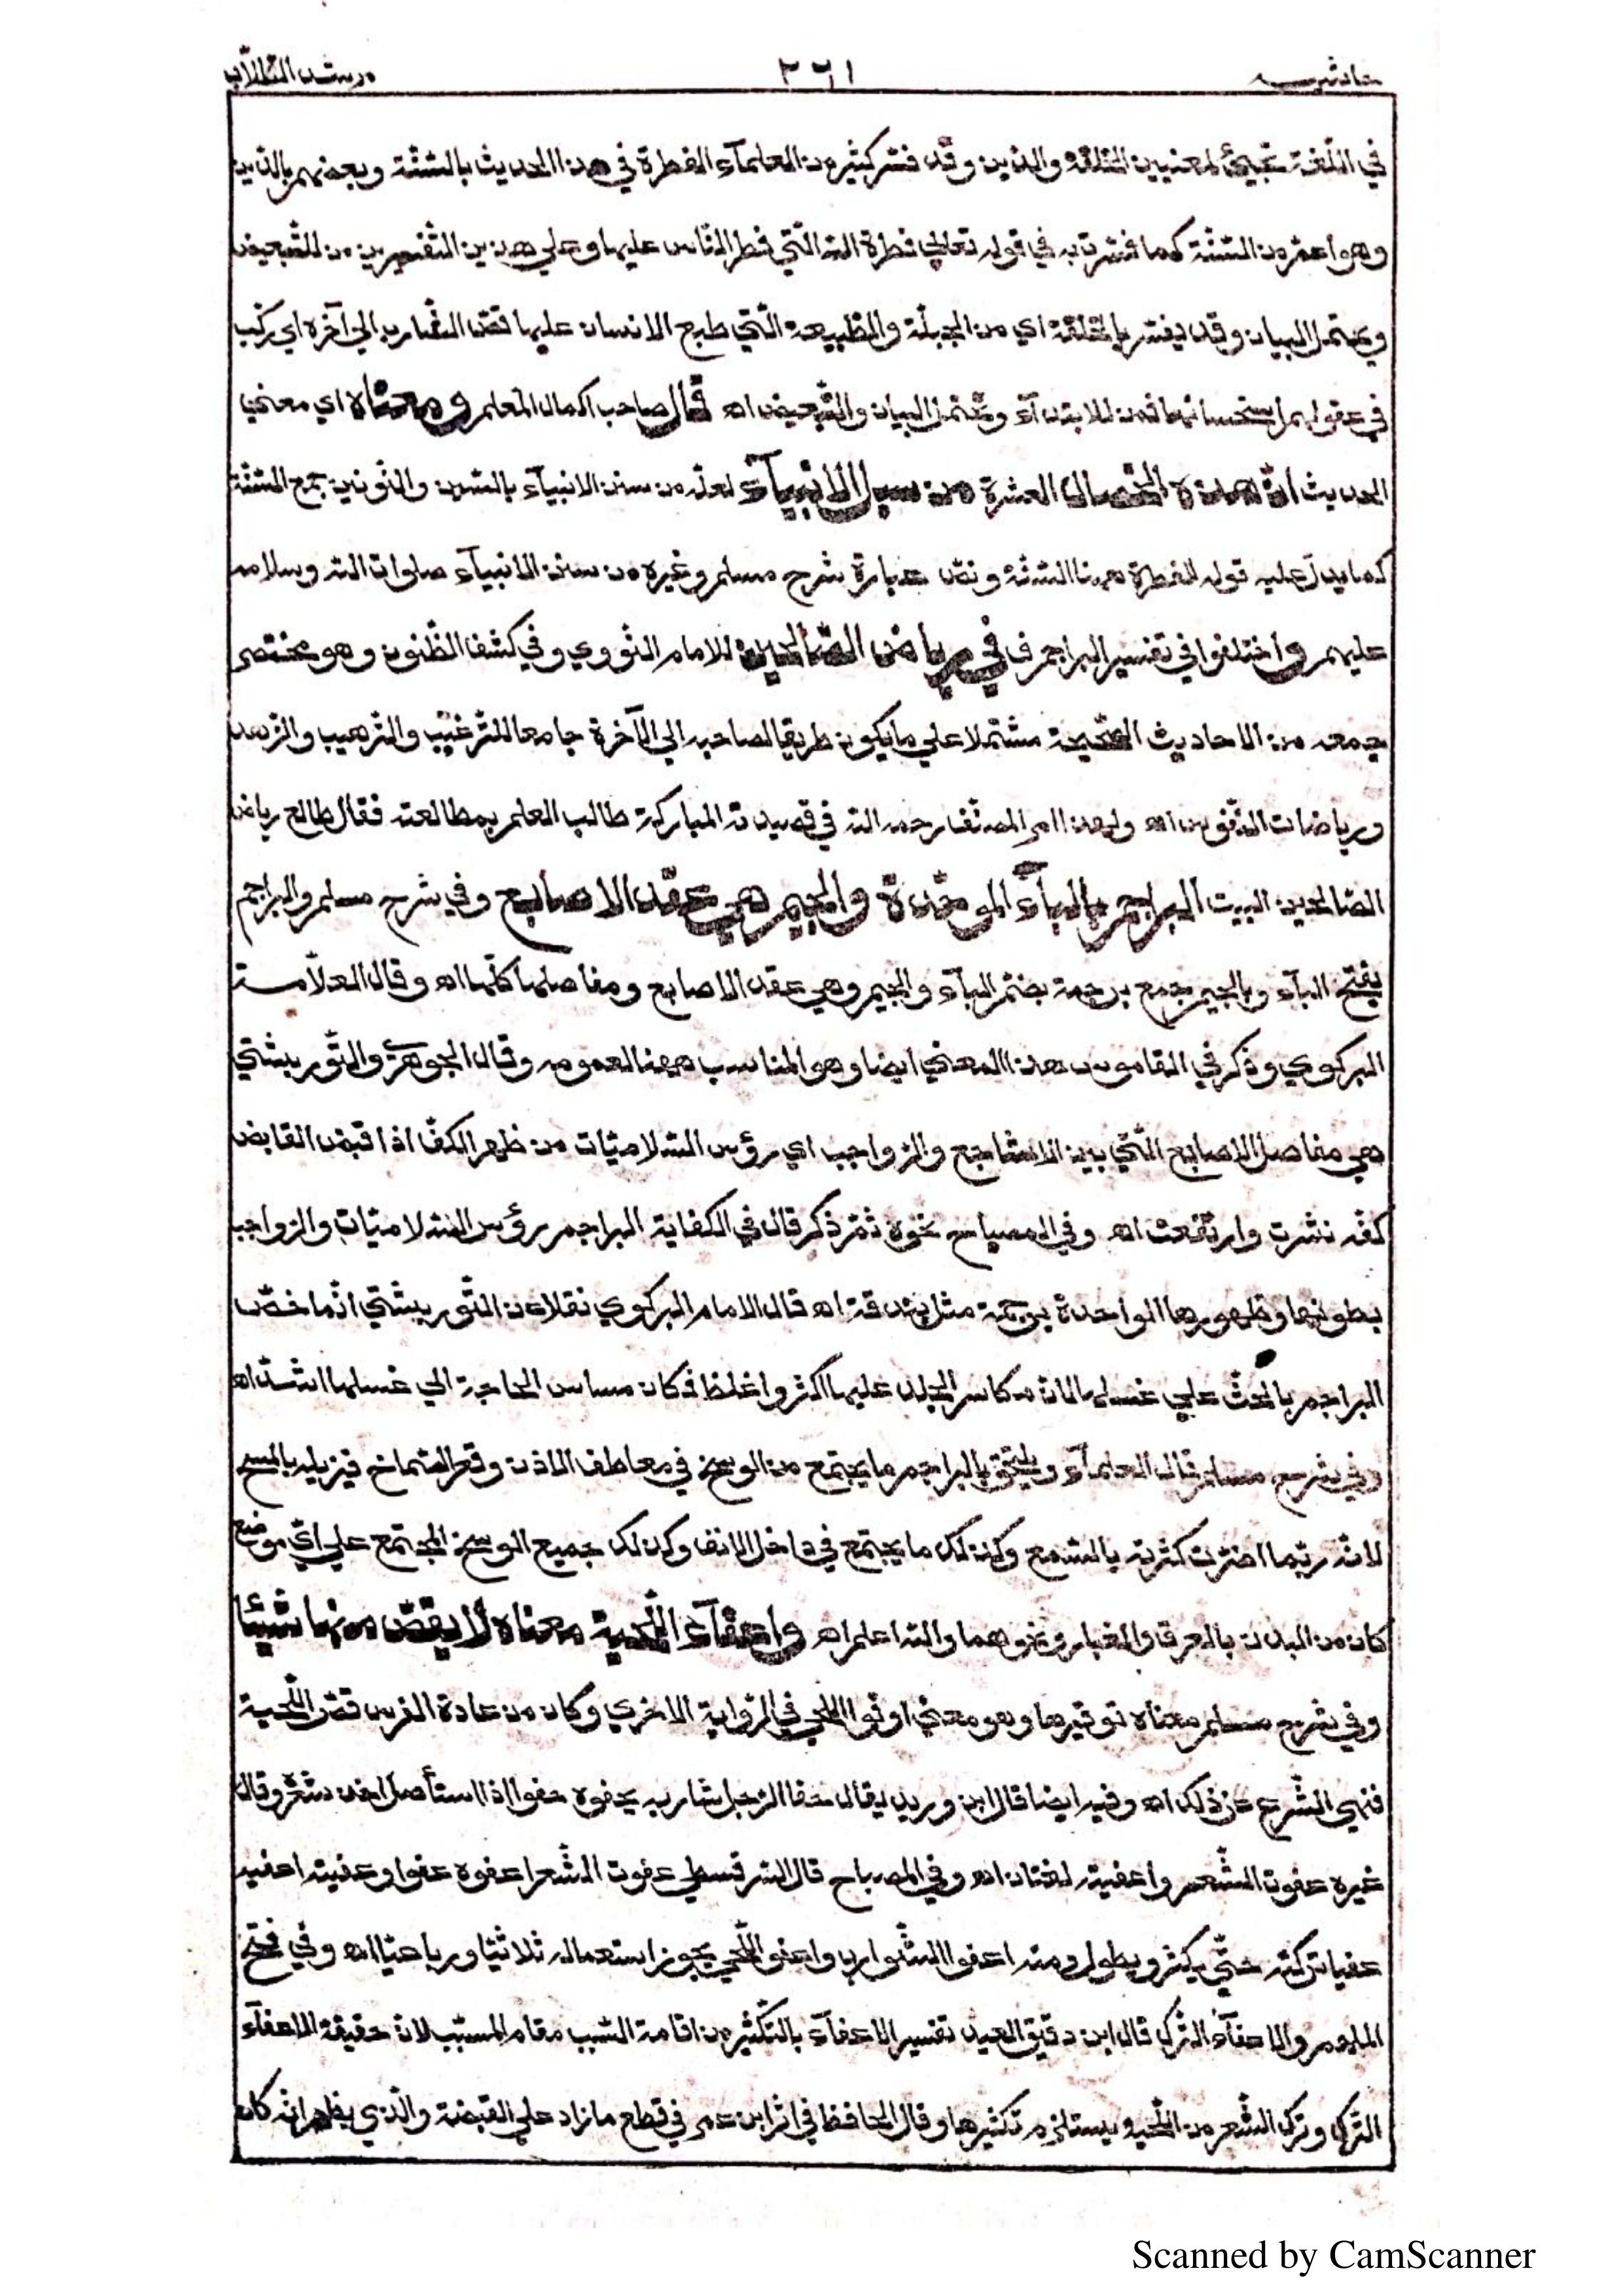 حاشيه ٣٦١ مرشد الطلاب
في اللغة تجيئ لمعنيين الخلقة والدين وقد فسر كثير من العلمآء الفطرة في هذا الحديث بالسنة وبعضهم بالدين
وهو اعم من السنة كما فسرت به في قوله تعالى فطرة الله التي فطر الناس عليها وعلي هذين التفسيرين من للتبعيض
ويحتمل البيان وقد يفسر بالخلقة اي من الجبلة والطبيعة التي طبع الانسان عليها قص الشارب الي آخره اي ركب
في عقولهم استحسانها فمن للابتدآء وتحتمل البيان والتبعيض اه قال صاحب اكمال المعلم ومعناه اي معني
الحديث ان هذه الخصال العشرة من سبل الانبيآء لعله من سنن الانبيآء بالسين والنونين جمع السنة
كما يدل عليه قوله الفطرة ههنا السنة ونص عبارة شرح مسلم وغيره من سنن الانبيآء صلوات الله وسلامه
عليهم واختلفوا في تفسير البراجم ف في رياض الصالحين للامام النووي وفي كشف الظنون وهو مختصر
جمعه من الاحاديث الصحيحة مشتملا علي ما يكون طريقا لصاحبه الي الآخرة جامعا للترغيب والترهيب والزهد
ورياضات النفوس اه ولهذا امر المصنف رحمه الله في قصيدته المباركة طالب العلم بمطالعته فقال طالع رياض
الصالحين البيت البراجم بالبآء الموحدة والجيم هي عقد الاصابع وفي شرح مسلم والبراجم
بفتح البآء وبالجيم جمع برجمة بضم البآء والجيم وهي عقد الاصابع ومفاصلها كلها اه وقال العلامة
البركوي وذكر في القاموس هذا المعني ايضا وهو المناسب ههنا لعمومه وقال الجوهري والتوربشتي
هي مفاصل الاصابع التي بين الاشاجع والرواجب اي رؤس السلاميات من ظهر الكف اذا قبض القابض
كفه نشزت وارتفعت اه وفي المصباح نحوه ثم ذكر قال في الكفاية البراجم رؤس السلاميات والرواجب
بطونها وظهورها الواحدة برجمة مثل بندقة اه قال الامام البركوي نقلا عن التوربشتي انما خص
البراجم بالحث علي غسلها لان مكاسر الجلد عليها اكثر واغلظ فكان مساس الحاجة الي غسلها اشد اه
وفي شرح مسلم قال العلمآء ويلتحق بالبراجم ما يجتمع من الوسخ في معاطف الاذن وقعر الصماخ فيزيله بالمسح
لانه ربما اضرت كثرته بالسمع وكذلك ما يجتمع في داخل الانف وكذلك جميع الوسخ المجتمع علي اي موضع
كان من البدن بالعرق والغبار ونحوهما والله اعلم اه واعفآء اللحية معناه لا يقص منها شيئا
وفي شرح مسلم معناه توفيرها وهو معني اوفوا اللحي في الرواية الاخري وكان من عادة الفرس قص اللحية
فنهي الشرع عن ذلك اه وفيه ايضا قال ابن دريد يقال حفا الرجل شاربه يحفوه حفوا اذا استأصل اخذ شعره وقال
غيره عفوت الشعر واعفيته لغتان اه وفي المصباح قال السرقسطي عفوت الشعر اعفوه عفوا وعفيته اعفيه
عفيا تركته حتي يكثر ويطول ومنه احفوا الشوارب واعفوا اللحي يجوز استعماله ثلاثيا ورباعيا اه وفي فتح
الملهم والاعفآء الترك قال ابن دقيق العيد تفسير الاعفآء بالتكثير من اقامة السبب مقام المسبب لان حقيقة الاعفآء
الترك وترك الشعر من اللحية يستلزم تكثيرها وقال الحافظ في اثر ابن عمر في قطع ما زاد علي القبضة والذي يظهر انه كان
Scanned by CamScanner